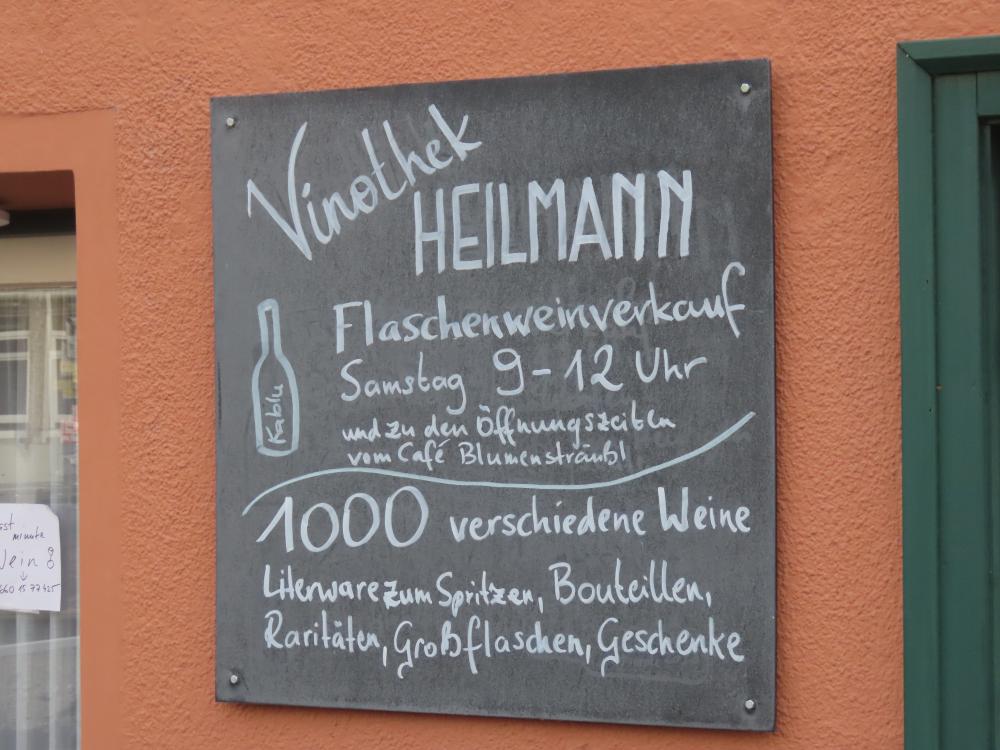 Vinothek
HEILMANN
Flaschenweinverkauf
Samstag 9-12 Uhr
und zu den Öffnungszeiten
vom Café Blumensträußl
Kablu
1000 verschiedene Weine
Literware zum Spritzen, Bouteillen,
Raritäten, Großflaschen, Geschenke
minute